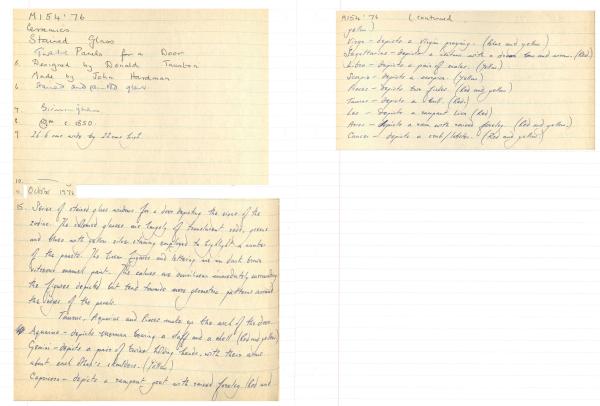 M154'76
Ceramics
Stained Glass
Twelve Panels for a Door
5. Designed by Donald Taunton
Made by John Hardman
6. Stained and painted glass
7. Birmingham
8. c. 1850
9. 26.6 cms wide by 22 cms high
10.
11. October 1976
15. Series of stained glass windows for a door depicting the signs of the
zodiac. The coloured glasses are largely of translucent reds, greens
and blues with yellow silver staining employed to highlight a number
of the panels. The linear figures and lettering are in dark brown
vitreous enamel paint. The colours are immediately surrounding
the figures depicted but tend towards more geometric patterns around
the edges of the panels.
Taurus, Aquarius and Pisces make up the arch of the door.
Aquarius - depicts merman bearing a staff and a shell (Red and yellow)
Gemini - depicts a pair of twins holding hands, with their arms
about each other's shoulders. (Yellow)
Capricorn - depicts a rampant goat with raised forelegs (Red and
M154'76 (continued
yellow)
Virgo - depicts a virgin praying. (Blue and yellow.)
Sagittarius - depicts a centaur with a drawn bow and arrow. (Red)
Libra - depicts a pair of scales. (Yellow)
Scorpio - depicts a scorpion. (Yellow)
Pisces - depicts two fishes. (Red and yellow)
Taurus - depicts a bull. (Red)
Leo - depicts a rampant lion (Red)
Aries - depicts a ram with raised foreleg. (Red and yellow.)
Cancer - depicts a crab/lobster. (Red and yellow.)